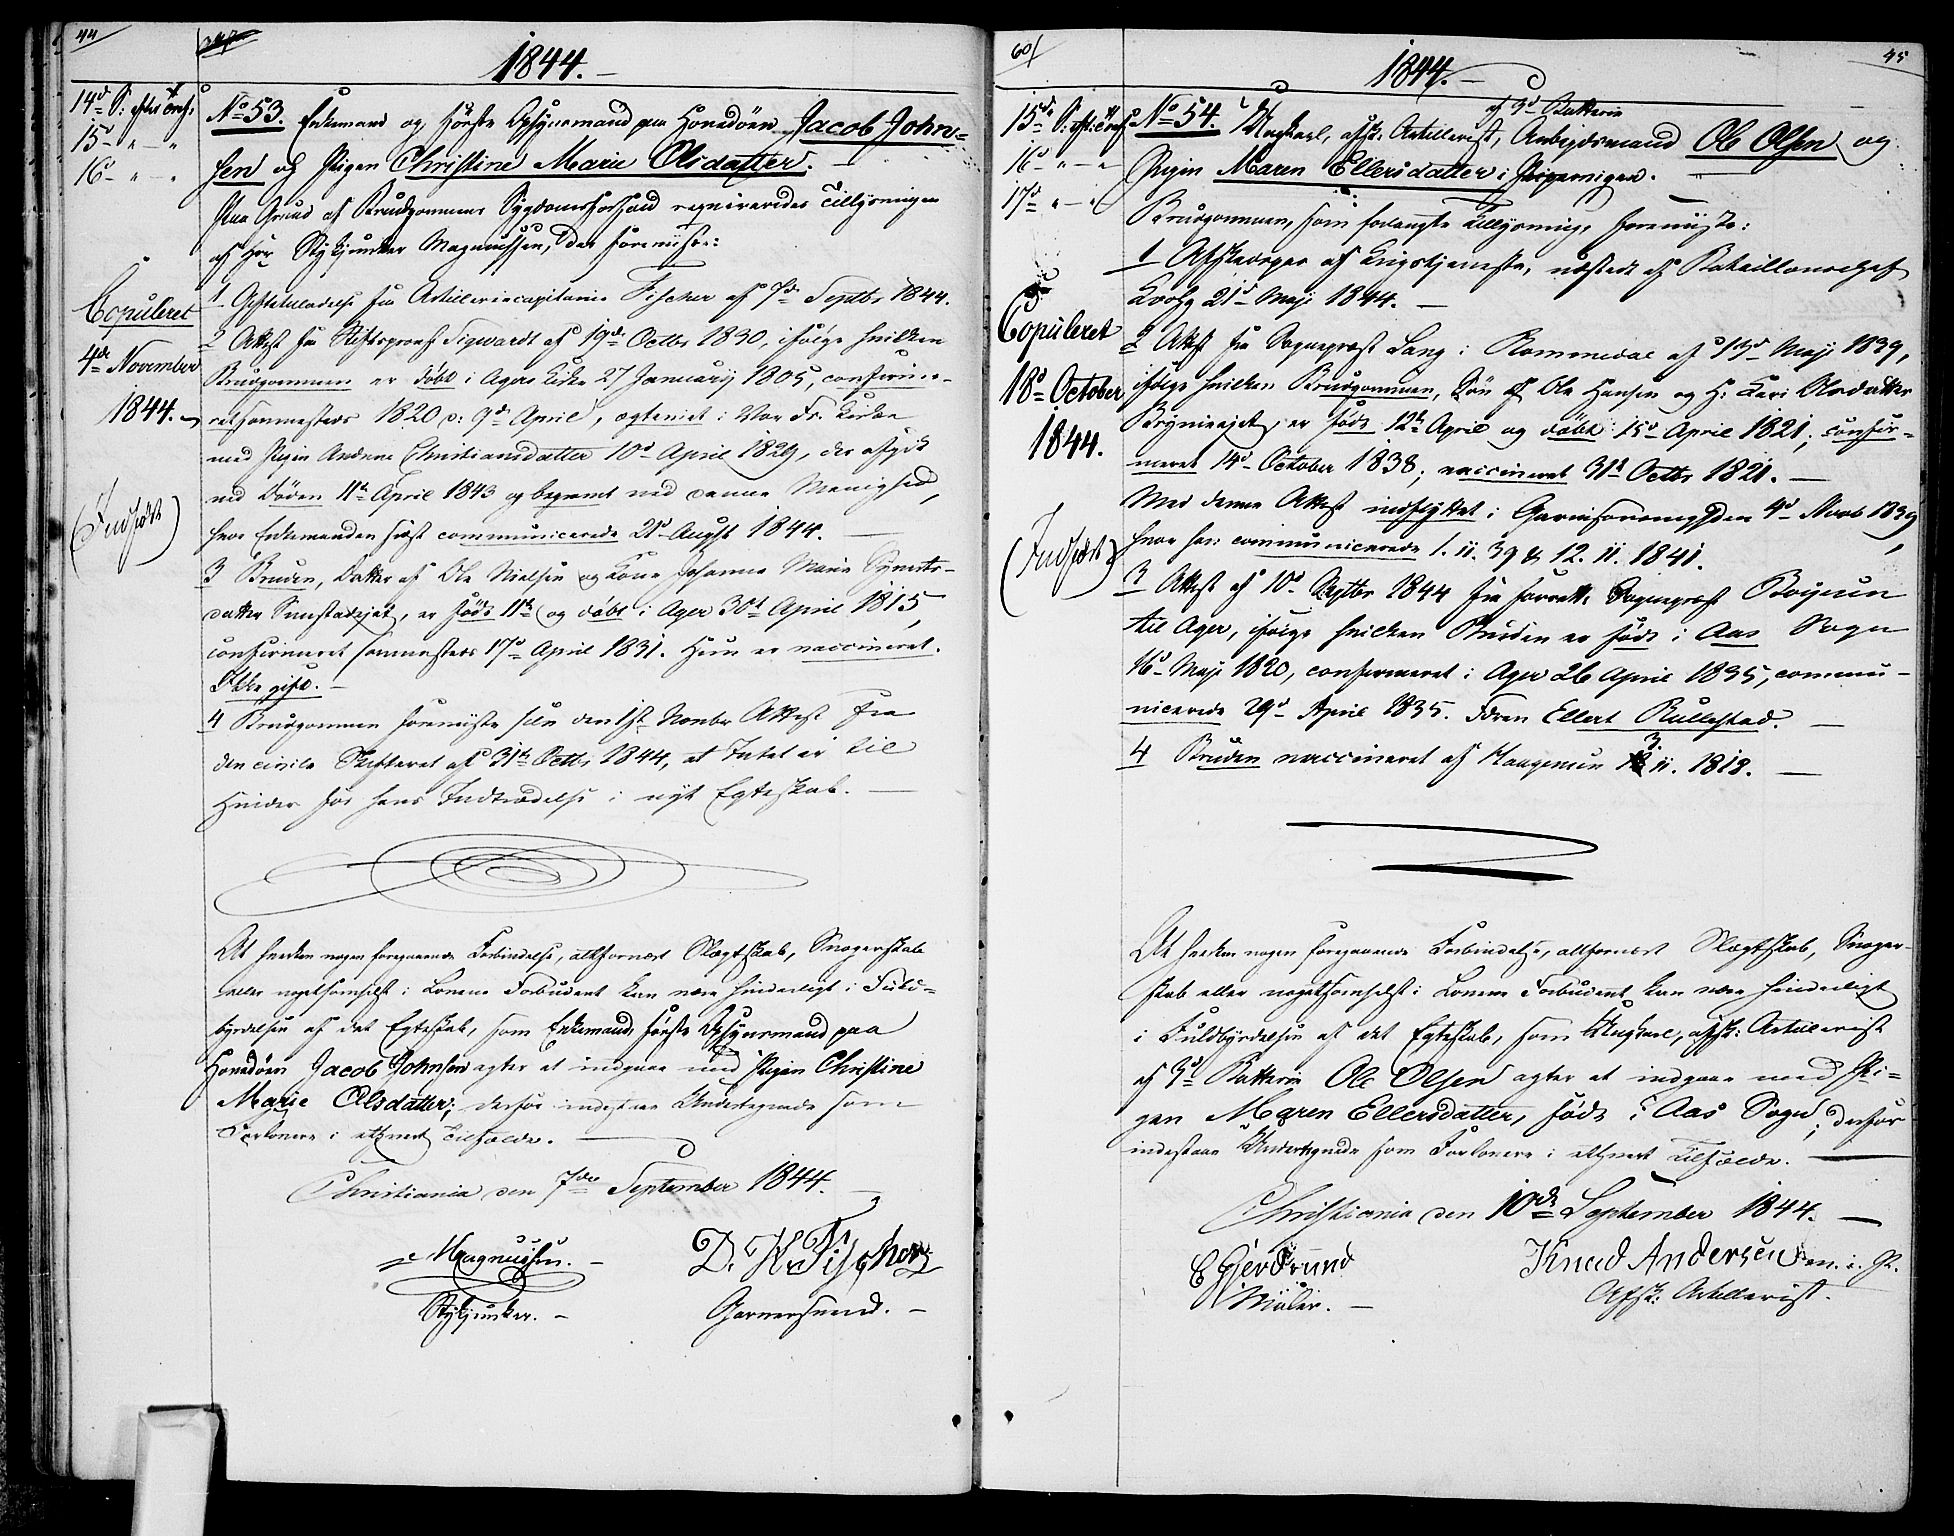 44
1844.
14d S: efter Tref:
15d " — "
16 - " — "
No 53. Enkemand og første Opsynsmand paa Hovedøen Jacob John-
sen og Pigen Christine Marie Olsdatter. —
Paa Grund af Brudgommens Sygdomsforfald requireredes Tillysningen
af Hr Stykjunker Magnussen, der foreviste:
1 Giftetilladelse fra Artilleriecapitaine Fischer af 7de Septbr 1844.
2 Attest fra Stiftsprovst Sigwardt af 19de Octbr 1830, ifølge hvilken
Brudgommen er døbt i Agers Kirke 27 Januarij 1805, confirme-
ret sammesteds 1820 d: 9d April, egteviet i Vor Fr. Kirke
med Pigen Andrine Christiansdatter 10d April 1829, der afgik
ved Døden 11te April 1843 og begravet ved denne Menighed,
hvor Enkemanden sidst communicerede 21d August 1844. —
3 Bruden, Datter af Ole Nielsen og Kone Johanne Marie
datter , er født 11te og døbt i Ager 30d April 1815,
confirmeret sammesteds 17d April 1831. Hun er vaccineret.
Ikke gift. —
4 Brudgommen foreviste siden den 1ste Novbr Attest fra
den civile Skifteret af 31te Octbr 1844, at Intet er til
Hinder for hans Indtrædelse i nyt Egteskab. —
Copuleret
4de November
1844.
(Indført)
At hverken nogen foregaaende Forbindelse, altfornært Slægtskab, Svogerskab
eller nogetsomhelst i Lovene Forbudent kan være hinderligt i Fuld-
byrdelsen af det Egteskab, som Enkemand, første Opsynsmand paa
Hovedøen Jacob Johnsen agter at indgaae med Pigen Christine
Marie Olsdatter; derfor indestaae Undertegnede som
Forlovere i ethvert Tilfælde. —
Christiania den 7de September 1844.
Magnussen. —
Stykjunker. —
D. K. Fischer
Garversvend. —
60/
1844. —
45
15de S: eft: Tref:
16d " — "
17d " — "
af 3d Batterie
No 54. Ungkarl, afsk: Artillerist, Arbeidsmand Ole Olsen og
Pigen Maren Ellersdatter i Pipervigen.
Brudgommen, som forlangte Tillysning, foreviste:
1 Afskedspas af Krigstjeneste, udstedt af Bataillonschef
Krohg 21d Maji 1844. —
2 Attest fra Sognepræst Lang i Rommedal af 13d Maji 1839,
ifølge hvilken Brudgommen, Søn af Ole Hansen og H: Kari Olsdatter
, er født 12te April og døbt 15d April 1821; confir-
meret 14d October 1838; vaccineret 31te Octbr 1821. —
Med denne Attest indflyttet i Garnisonsmenigheden 4d Novb 1839,
hvor han communicerede 1. 11. 39 & 12. 11. 1841.
3 Attest af 10d Septbr 1844 fra Sognepræst
til Ager, ifølge hvilken Bruden er født i Aas Sogn
16d Maji 1820, confirmeret i Ager 26 April 1835, commu-
nicerede 29d April 1835. Faren Ellert Rullestad. —
4 Bruden vaccineret af 3. 11. 1818. —
Copuleret
18d October
1844.
(Indført)
At hverken nogen foregaaende Forbindelse, altfornært Slægtskab, Svoger-
skab eller nogetsomhelst i Lovene Forbudent kan være hinderligt
i Fuldbyrdelsen af det Egteskab, som Ungkarl, afsk: Artillerist
af 3d Batterie Ole Olsen agter at indgaae med Pi-
gen Maren Ellersdatter, født i Aas Sogn; derfor
indestaae Undertegnede som Forlovere i ethvert Tilfælde. —
Christiania den 10de September 1844. —
E Gjerdrund
Maler. —
Knud Andersen m. i. P.
Afsk: Artillerist.